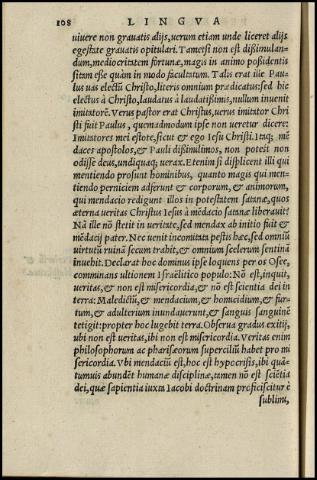 108 LINGVA
viuere non grauatis alijs, uerum etiam unde liceret alijs
egestate grauatis opitulari. Tametsi non est dissimulan-
dum, mediocritatem fortunæ, magis in animo possidentis
sitam esse quàm in modo facultatum. Talis erat ille Pau-
lus uas electũ Christo, literis omnium prædicatus: sed hic
electus à Christo, laudatus à laudatissimis, nullum inuenit
imitatorẽ. Verus pastor erat Christus, uerus imitator Chri
sti fuit Paulus, quemadmodum ipse non ueretur dicere:
Imitatores mei estote, sicut & ego Iesu Christi. Itaq; mẽ
daces apostolos, & Pauli dissimulimos, non potest non
odisse deus, undiquaq; uerax. Etenim si displicent illi qui
mentiendo prosunt hominibus, quanto magis qui men-
tiendo perniciem adferunt & corporum, & animorum,
qui mendacio redigunt illos in potestatem satanæ, quos
æterna ueritas Christus Iesus à mẽdacio satanæ liberauit?
Nã ille nõ stetit in ueritate, sed mendax ab initio fuit &
mẽdacij pater. Nec uenit incomitata pestis hæc, sed omniũ
uirtutũ ruinã secum trahit, & omnium scelerum sentinã
inuehit. Declarat hoc dominus ipse loquens per os Osee,
comminans ultionem Israëlitico populo: Nõ est, inquit,
ueritas, & non est misericordia, & nõ est scientia dei in
terra: Maledictũ, & mendacium, & homicidium, & fur-
tum, & adulterium inundauerunt, & sanguis sanguinẽ
tetigit: propter hoc lugebit terra. Obserua gradus exitij,
ubi non est ueritas, ibi non est misericordia. Veritas enim
philosophorum ac pharisæorum supercilium habet pro mi
sericordia. Vbi mendaciũ est, hoc est hypocrisis, ibi quã-
tumuis abundẽt humanæ disciplinæ, tamen nõ est sciẽtia
dei, quæ sapientia iuxta Iacobi doctrinam proficiscitur è
sublimi,